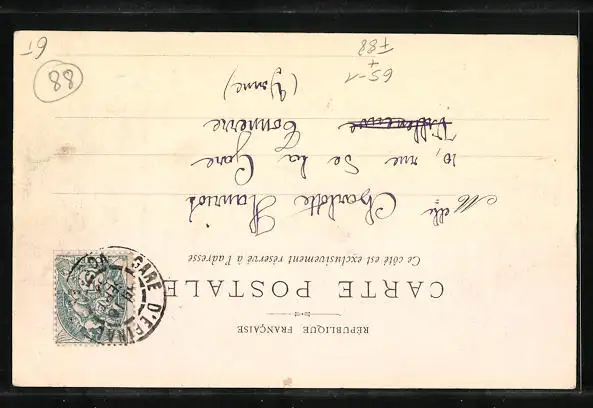 RÉPUBLIQUE FRANÇAISE
CARTE POSTALE
Ce côté est exclusivement réservé à l'adresse
Melle Charlotte Hanriot
10, rue de la Gare
Villeneuve Tonnerre
(Yonne)
GARE D'EPINAL
65-1
+
F88
6T
88